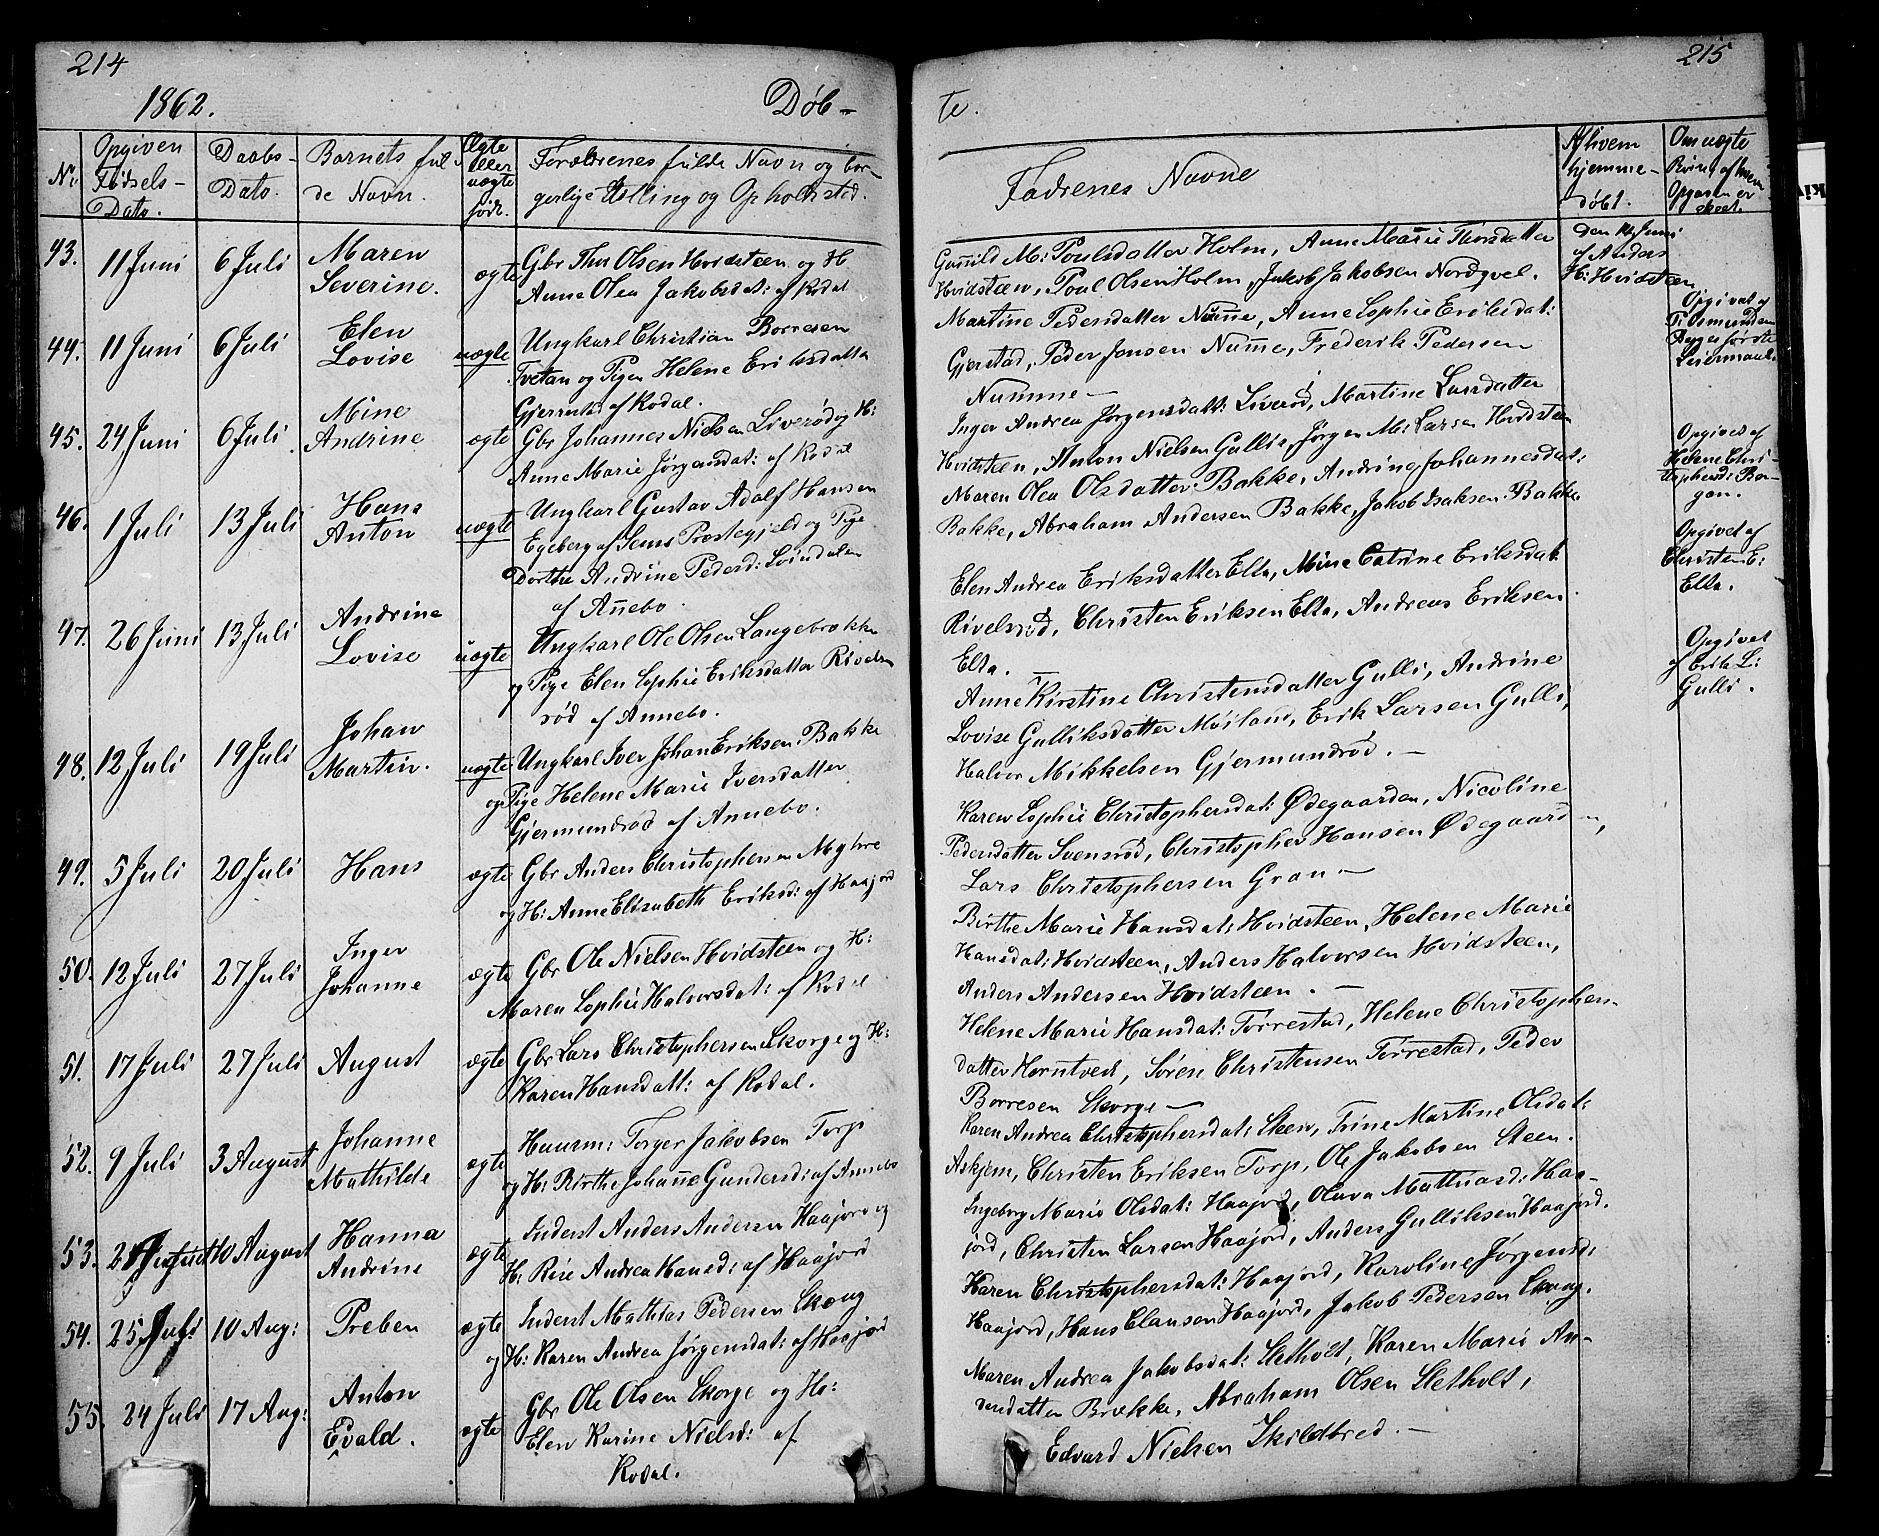 214
1862.
Døb-
No
Opgiven
Fødsels-
Dato.
Daabs-
Dato.
Barnets ful
de Navn.
Ægte
eller
uægte
født.
Forældrenes fulde Navn og bor-
gerlige Stilling og Opholdssted.
43.
11 Juni
6 Juli
Maren
Severine.
ægte
Gbr Thor Olsen Hvidsteen og H
Anne Olea Jakobsdat: af Kodal
44.
11 Juni
6 Juli
Elen
Lovise
uægte
Ungkarl Christian Borresen
Tvetan og Pigen Helene Eriksdatter
af Kodal.
45.
24 Juni
6 Juli
Mine
Andrine
ægte
Gbr Johannes Nielsen Liverød og H:
Anne Marie Jørgensdat: af Kodal
46.
1 Juli
13 Juli
Hans
Anton
uægte
Ungkarl Gustav Adolf Hansen
Egeberg af Sems Præstegjeld og Pige
Dorthe Andrine Pedersd:
af Annebo.
47.
26 Juni
13 Juli
Andrine
Lovise
uægte
Ungkarl Ole Olsen Langebrække
og Pige Elen Sophie Eriksdatter Rivels
rød af Annebo.
48.
12 Juli
19 Juli
Johan
Martin.
uægte
Ungkarl Iver Johan Eriksen Bakke
og Pige Helene Marie Iversdatter
Gjermundrød af Annebo.
49.
5 Juli
20 Juli
Hans
ægte
Gbr Anders Christophersen Myhre
og H: Anne Elisabeth Eriksd: af Haajord
50.
12 Juli
27 Juli
Inger
Johanne
ægte
Gbr Ole Nielsen Hvidsteen og H:
Maren Sophie Halvorsdat: af Kodal
51.
17 Juli
27 Juli
August
ægte
Gbr Lars Christophersen Skorge og H:
Karen Hansdatt: af Kodal.
52.
9 Juli
3 August
Johanne
Mathilde
ægte
Huusm: Torger Jakobsen Torp
og H: Birthe Johanne Gundersd: af Annebo
53.
2 August
10 August
Hanna
Andrine
ægte
Inderst Anders Andersen Haajord og
H: Andrea Hansd: af Haajord
54.
25 Juli
10 Aug:
Preben
ægte
Inderst Mathias Pedersen Skoug
og H: Karen Andrea Jørgensdat: af Haajord
55.
24 Juli
17 Aug:
Anton
Evald.
ægte
Gbr Ole Olsen Skorge og H:
Elen Karine Nielsd: af
Kodal.
215
te.
Fadrenes Navne
Af hvem
hjemme-
døbt.
Om uægte
Børn, af hvem
Opgaven er
skeet.
Gunild M: Poulsdatter Holm, Anne Marie Thorsdatter
Hvidsteen, Poul Olsen Holm, Jakob Jakobsen Nordgvel.
den 14 Juni
af Anders
H: Hvidsteen
Martine Pedersdatter Numme, Anne Sophie Eriksdat:
Gjerstad, Peder Jonsen Numme, Frederik Pedersen
Numme -
Opgivet af
P: Osmundsen
første
Leiermaal
Inger Andrea Jørgensdatt: Liverød, Martine Larsdatter
Hvidsteen, Anton Nielsen Gulli, Jørgen M: Larsen Hvidsteen
Maren Olea Olsdatter Bakke, Andrine Johannesdat:
Bakke, Abraham Andersen Bakke, Jakob Isaksen Bakke
Opgivet af
Helene Chri-
stophersd: Bor-
gen.
Elen Andrea Eriksdatter Elta, Mine Catrine Eriksdat:
Rivelsrød, Christen Eriksen Elta, Andreas Eriksen
Elta. -
Opgivet af
Christen E:
Elta.
Anne Kirstine Christensdatter Gulli, Andrine
Lovise Gulliksdatter Møiland, Erik Larsen Gulli,
Halvor Mikkelsen Gjermundrød. -
Opgivet
af Erik L:
Gulli.
Karen Sophie Christophersdat: Ødegaarden, Nicoline
Pedersdatter Svensrød, Christopher Hansen Ødegaarden,
Lars Christophersen Gran -
Birthe Marie Hansdat: Hvidsteen, Helene Marie
Hansdat: Hvidsteen, Anders Halvorsen Hvidsteen,
Anders Andersen Hvidsteen. -
Helene Marie Hansdat: Torrestad, Helene Christophers-
datter Hørntvedt, Søren Christensen Torrestad, Peder
Borresen Skorge -
Karen Andrea Christophersdat: Skeen, Trine Martine Olsdat:
Askjem, Christen Eriksen Torp, Ole Jakobsen Steen.
Ingeborg Marie Olsdat: Haajord, Olava Mathiasd: Haa-
jord, Christen Larsen Haajord, Anders Gulliksen Haajord.
Karen Christophersdat: Haajord, Karoline Jørgensd:
Haajord, Hans Clausen Haajord, Jakob Pedersen Skoug.
Maren Andrea Jakobsdat: Sletholt, Karen Marie An-
dersdatter Brække, Abraham Olsen Sletholt,
Edvard Nielsen Skildbred. -